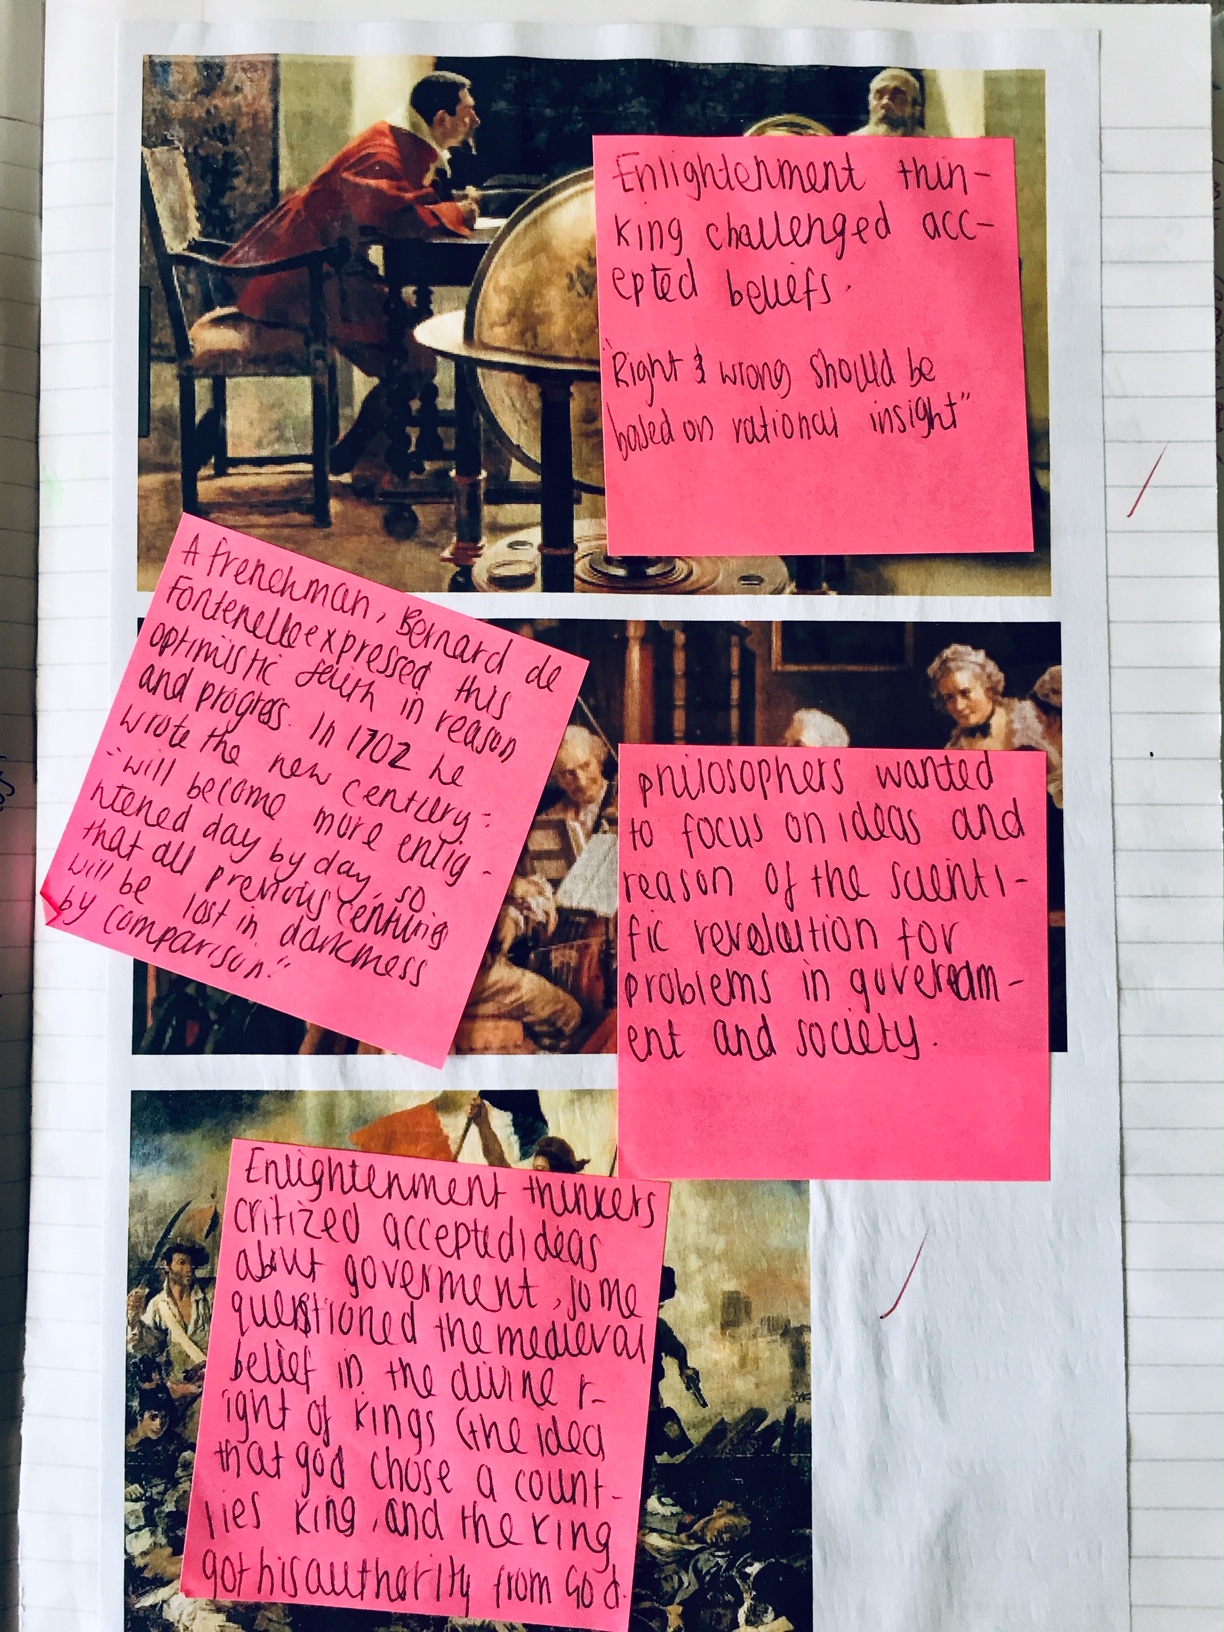 Enlightenment thin-
king challenged acc-
epted beliefs.
"Right & wrong should be
based on rational insight"
A frenchman, Bernard de
Fontenelle expressed this
optimistic feith in reason
and progress. In 1702 he
wrote the new century:
"will become more enlig-
htened day by day, so
that all previous centuries
will be lost in darkness
by comparison."
philosophers wanted
to focus on ideas and
reason of the scienti-
fic revolution for
problems in
ent and society.
Enlightenment thinkers
critized accepted ideas
about goverment, some
questioned the medieval
belief in the divine r-
ight of kings (the idea
that god chose a count-
ries king, and the king
got his authority from God.